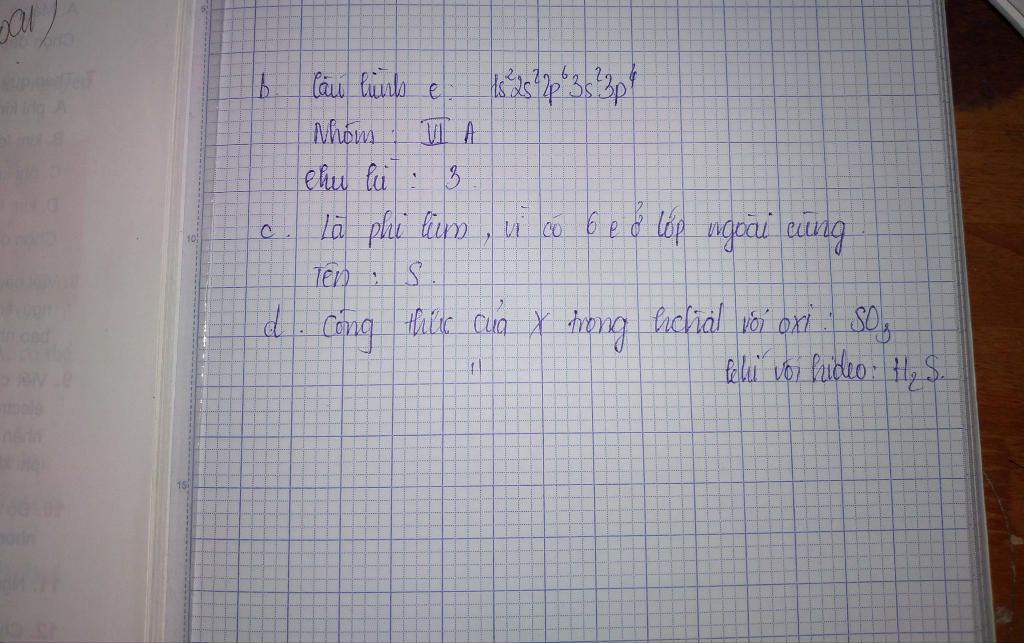 oại)
b. Cấu hình e: 1s²2s²2p⁶3s²3p⁴
Nhóm: VI A
chu kì: 3.
c. Là phi kim, vì có 6 e ở lớp ngoài cùng.
Tên: S.
d. Công thức của X trong hchất với oxi: SO₃
" khí với hidro: H₂S.
5
10
15